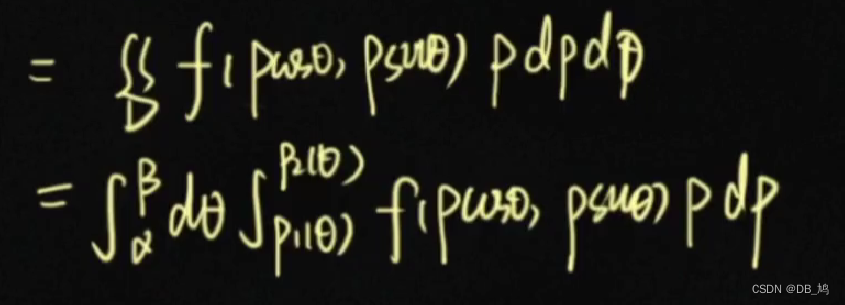 = ∬_D f(ρcosθ, ρsinθ) ρdρdθ
= ∫_α^β dθ ∫_{ρ₁(θ)}^{ρ₂(θ)} f(ρcosθ, ρsinθ) ρdρ
CSDN @DB_鸠